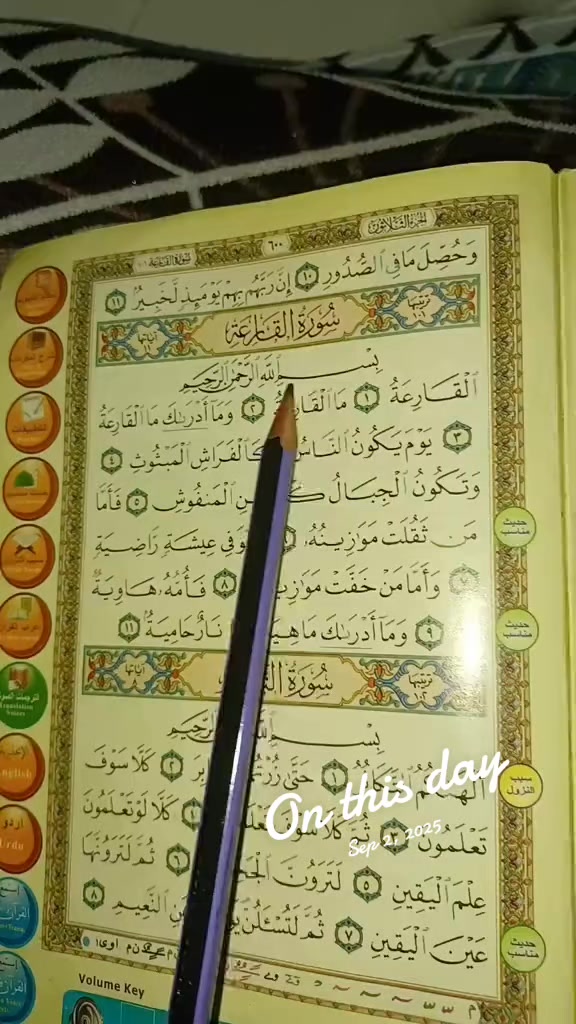 الجزء الثلاثون
٦٠٠
سورة القارعة
وَحُصِّلَ مَا فِي الصُّدُورِ ١٠ إِنَّ رَبَّهُم بِهِمْ يَوْمَئِذٍ لَّخَبِيرٌ ١١
ترتيبها ١٠١
سُورَةُ القَارِعَةِ
آياتها
بِسْمِ اللَّهِ الرَّحْمَٰنِ الرَّحِيمِ
الْقَارِعَةُ ١ مَا الْقَارِعَةُ ٢ وَمَا أَدْرَىٰكَ مَا الْقَارِعَةُ
٣ يَوْمَ يَكُونُ النَّاسُ كَالْفَرَاشِ الْمَبْثُوثِ ٤
وَتَكُونُ الْجِبَالُ الْمَنفُوشِ ٥ فَأَمَّا
مَن ثَقُلَتْ مَوَٰزِينُهُ فِي عِيشَةٍ رَّاضِيَةٍ
٧ وَأَمَّا مَنْ خَفَّتْ ٨ فَأُمُّهُ هَاوِيَةٌ
٩ وَمَا أَدْرَىٰكَ مَا هِيَهْ نَارٌ حَامِيَةٌ ١١
ترتيبها ١٠٢
سُورَةُ
آياتها
بِسْمِ اللَّهِ الرَّحِيمِ
١ حَتَّىٰ زُرْتُمُ ٢ كَلَّا سَوْفَ
تَعْلَمُونَ ٣ ثُمَّ كَلَّا سَوْفَ كَلَّا لَوْ تَعْلَمُونَ
عِلْمَ الْيَقِينِ ٥ لَتَرَوُنَّ ٦ ثُمَّ لَتَرَوُنَّهَا
عَيْنَ الْيَقِينِ ٧ ثُمَّ لَتُسْـَٔلُنَّ النَّعِيمِ ٨
حديث مناسب
حديث مناسب
سبب النزول
حديث مناسب
Translation
English
اردو
Urdu
Volume Key
On this day
Sep 21, 2025